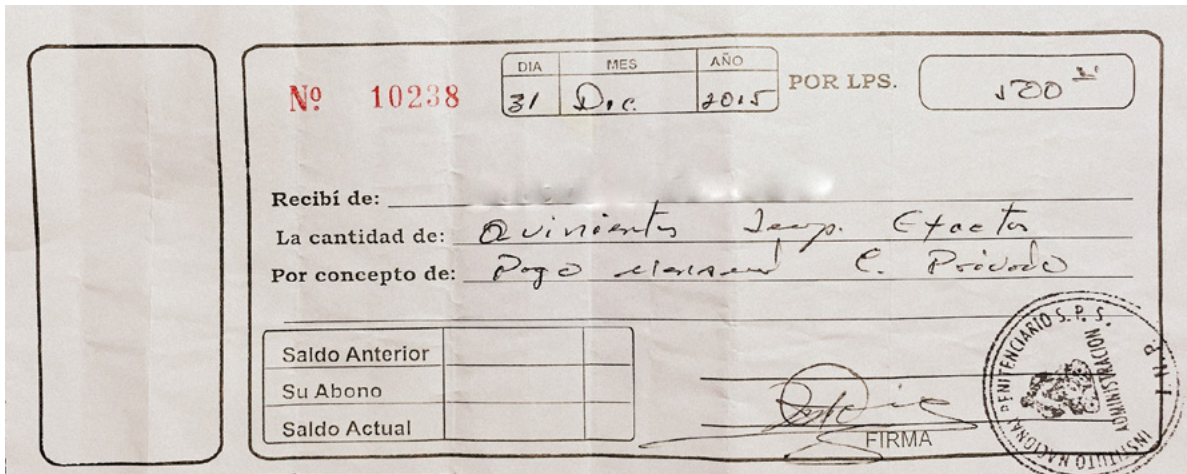 Nº 10238
DIA MES AÑO
31 Dic. 2015
POR LPS. 500
Recibí de:
La cantidad de: Quinientos Lemp. Exactos
Por concepto de: Pago Mensual C. Privado
Saldo Anterior
Su Abono
Saldo Actual
FIRMA
INSTITUTO NACIONAL PENITENCIARIO S. P. S.
ADMINISTRACION
I.N.P.